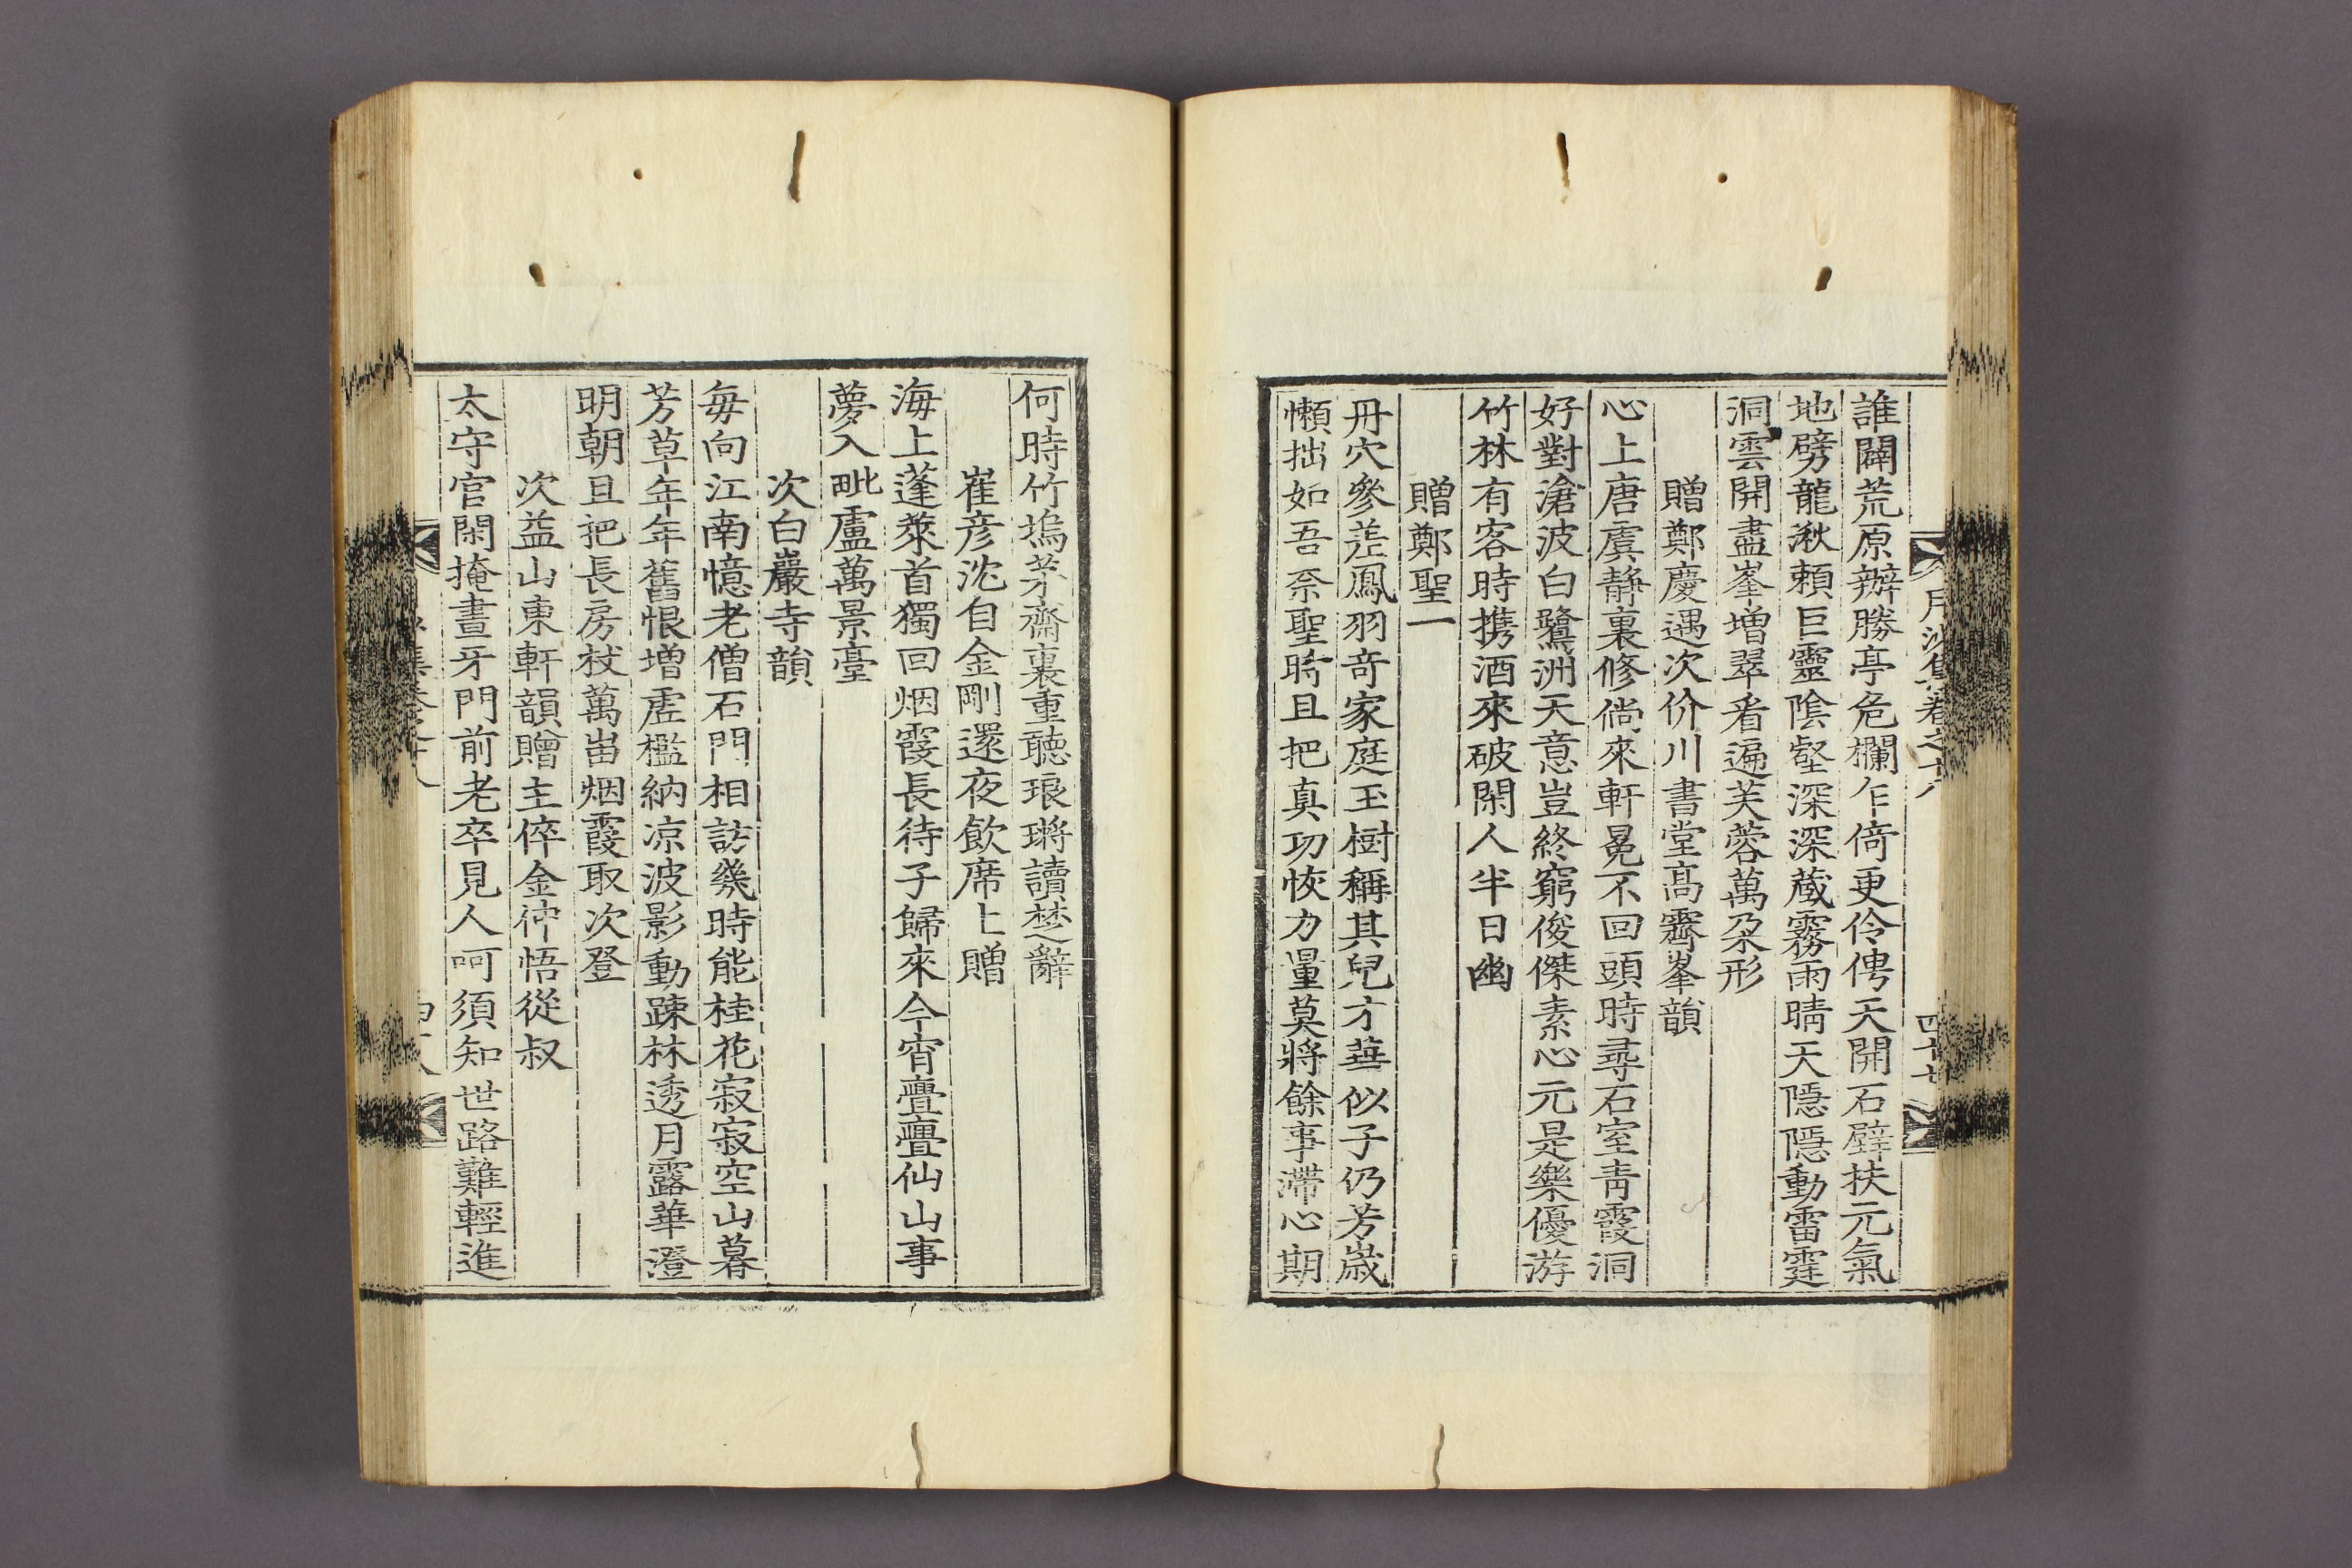 月沙集卷之十八 四十七
誰闢荒原辦勝亭危欄乍倚更伶俜天開石壁扶元氣
地劈龍湫賴巨靈陰壑深深蔵霧雨晴天隱隱動雷霆
洞雲開盡峯增翠看遍芙蓉萬朶形
贈鄭慶遇次价川書堂高霽峯韻
心上唐虞靜裏修倘來軒冕不回頭時尋石室靑霞洞
好對滄波白鷺洲天意豈終窮俊傑素心元是樂優游
竹林有客時携酒來破閑人半日幽
贈鄭聖一
丹穴參差鳳羽竒家庭玉樹稱其兒才華似子仍芳歲
懶拙如吾奈聖時且把真功恢力量莫將餘事滯心期
何時竹塢茅齋裏重聽琅璈讀楚辭
崔彦沈自金剛還夜飮席上贈
海上蓬萊首獨回烟霞長待子歸來今宵疊疊仙山事
夢入毗盧萬景臺
次白巖寺韻
每向江南憶老僧石門相訪幾時能桂花寂寂空山暮
芳草年年舊恨增虛檻納凉波影動踈林透月露華澄
明朝且把長房杖萬峀烟霞取次登
次益山東軒韻贈主倅金仲悟從叔
太守官閑掩晝牙門前老卒見人呵須知世路難輕進